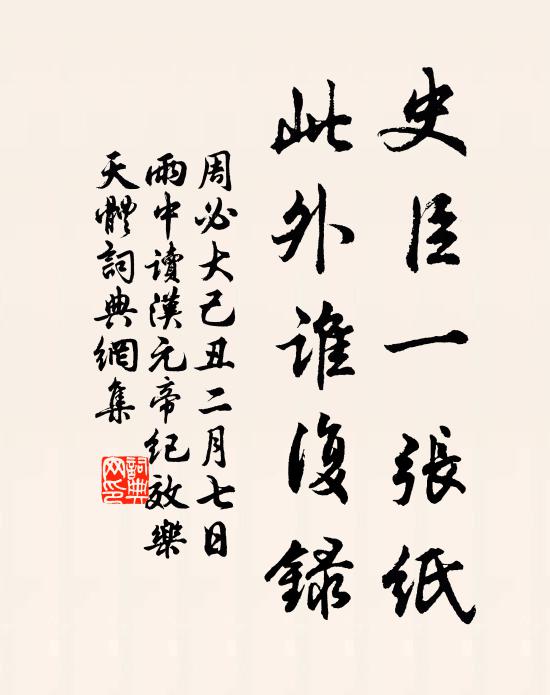 史臣一張紙
此外誰復録
周必大己丑二月七日
雨中讀漢元帝紀效樂
天體詞典網集
詞典网印